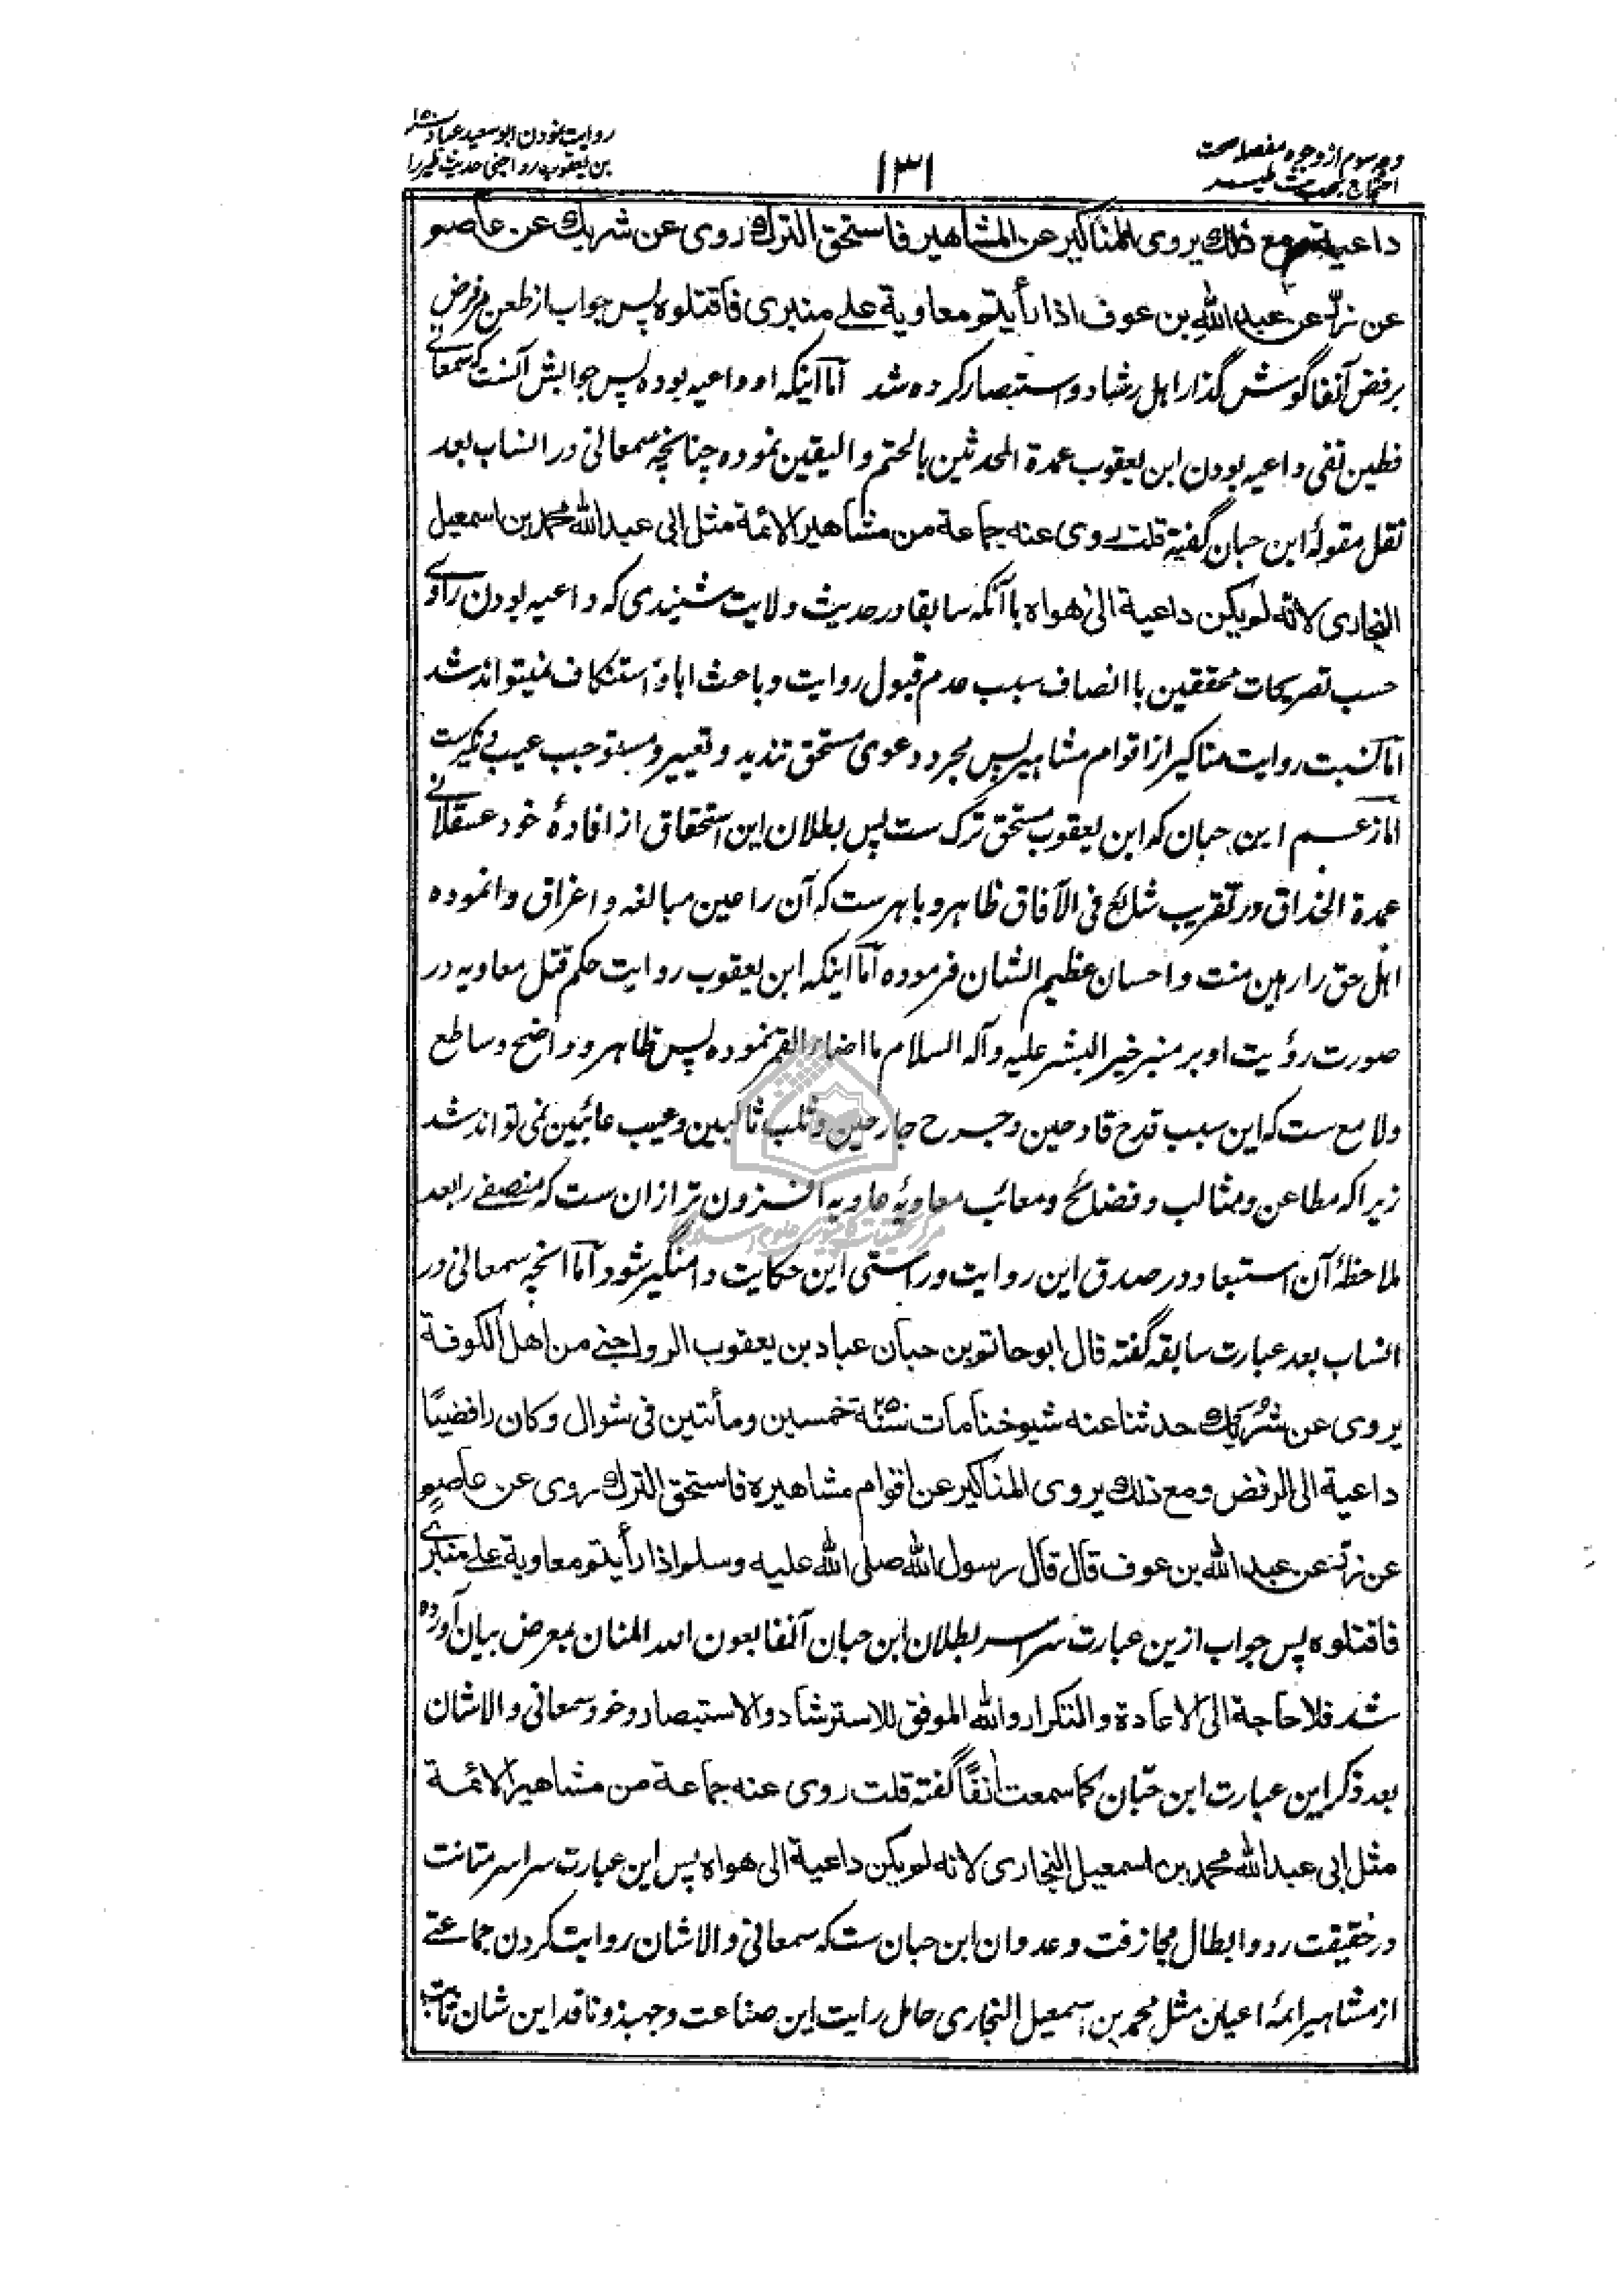 وجه سوم از وجوه مفصله صحت
احتجاج بحدیث طیر
۱۳۱
روایت نمودن ابوسعید عباد
بن یعقوب رواجنی حدیث طیر را
داعیة ومع ذلك یروی المناکیر عن المشاهیر فاستحق الترك روی عن شریك عن عاصم
عن زرّ عن عبد الله بن عوف اذا رأیتم معاویة علی منبری فاقتلوه پس جواب از طعن مرفوض
برفض آنفا گوش گذار اهل رشاد و استبصار کرده شد امّا اینکه او داعیه بوده پس جوابش آنست که سمعانی
فطین نفی داعیه بودن ابن یعقوب عمدة المحدثین بالحتم و الیقین نموده چنانچه سمعانی در انساب بعد
نقل مقولۀ ابن حبان گفته قلت روی عنه جماعة من مشاهیر الائمة مثل ابی عبد الله محمد بن اسمعیل
البخاری لانه لم یکن داعیة الی هواه با آنکه سابقا در حدیث ولایت شنیدی که داعیه بودن راوی
حسب تصریحات محققین با انصاف سبب عدم قبول روایت و باعث اباء و استنکاف نمیتواند شد
امّا نسبت روایت مناکیر از اقوام مشاهیر پس مجرد دعوی مستحق تندید و تعییر و مستوجب عیب و نکیرست
امّا زعم ابن حبان که ابن یعقوب مستحق ترک ست پس بطلان این استحقاق از افادۀ خود عسقلانی
عمدة الحذاق در تقریب شائع فی الآفاق ظاهر و باهر ست که آن را عین مبالغه و اغراق وانموده
اهل حق را رهین منت و احسان عظیم الشان فرموده امّا اینکه ابن یعقوب روایت حکم قتل معاویه در
صورت رؤیت او بر منبر خیر البشر علیه و آله السلام ما اضاء القمر نموده پس ظاهر و واضح و ساطع
ولامع ست که این سبب قدح قادحین و جرح جارحین و ثلب ثالبین و عیب عائبین نمی تواند شد
زیرا که مطاعن و مثالب و فضائح و معائب معاویۀ عاویه افزون تر ازان ست که منصفی را بعد
ملاحظۀ آن استبعاد در صدق این روایت و راستی این حکایت دامنگیر شود امّا آنچه سمعانی در
انساب بعد عبارت سابقه گفته قال ابو حاتم بن حبان عباد بن یعقوب الرواجنی من اهل الکوفة
یروی عن شریك حدثنا عنه شیوخنا مات سنة ۲۵۰ خمسین و مأتین فی شوال و کان رافضیًا
داعیة الی الرفض ومع ذلك یروی المناکیر عن اقوام مشاهیره فاستحق الترك روی عن عاصم
عن زرّ عن عبد الله بن عوف قال قال رسول الله صلی الله علیه و سلم اذا رأیتم معاویة علی منبری
فاقتلوه پس جواب ازین عبارت سراسر بطلان ابن حبان آنفا بعون الله المنان بمعرض بیان آورده
شد فلا حاجة الی الاعادة و التکرار والله الموفق للاسترشاد و الاستبصار و خود سمعانی والاشان
بعد ذکر این عبارت ابن حبّان کما سمعت آنفًا گفته قلت روی عنه جماعة من مشاهیر الائمة
مثل ابی عبد الله محمد بن اسمعیل البخاری لانه لم یکن داعیة الی هواه پس این عبارت سراسر متانت
در حقیقت رد و ابطال مجازفت و عدوان ابن حبان ست که سمعانی والاشان روایت کردن جماعتی
از مشاهیر ائمۀ اعیان مثل محمد بن اسمعیل البخاری حامل رایت این صناعت و جهبذ و ناقد این شان ثابت
مرکز تحقیقات کامپیوتری علوم اسلامی